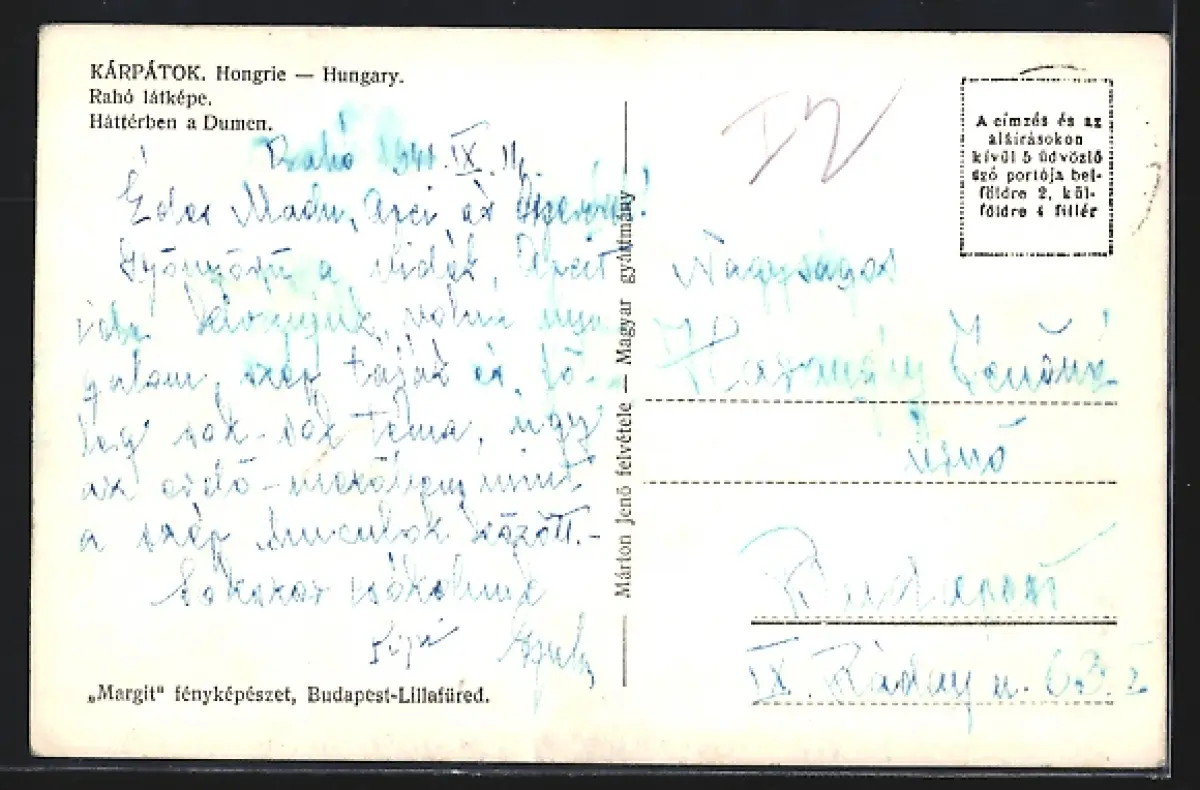 KÁRPÁTOK. Hongrie — Hungary.
Rahó látképe.
Háttérben a Dumen.
Rahó 1941. IX. 11.
Édes Madu, és
Gyönyörű a vidék,
ide volna nyu
galom, szép tájak és fő-
leg sok-sok téma, úgy
az erdő- mint
a szép huculok között.-
Sokszor csókolunk
„Margit“ fényképészet, Budapest-Lillafüred.
Márton Jenő felvétele — Magyar gyártmány
A címzés és az
aláírásokon
kívül 5 üdvözlő
szó portója bel-
földre 2, kül-
földre 4 fillér
Nagyságos
Harmány Jenőné
Úrnő
Budapest
IX. Ráday u. 63. I